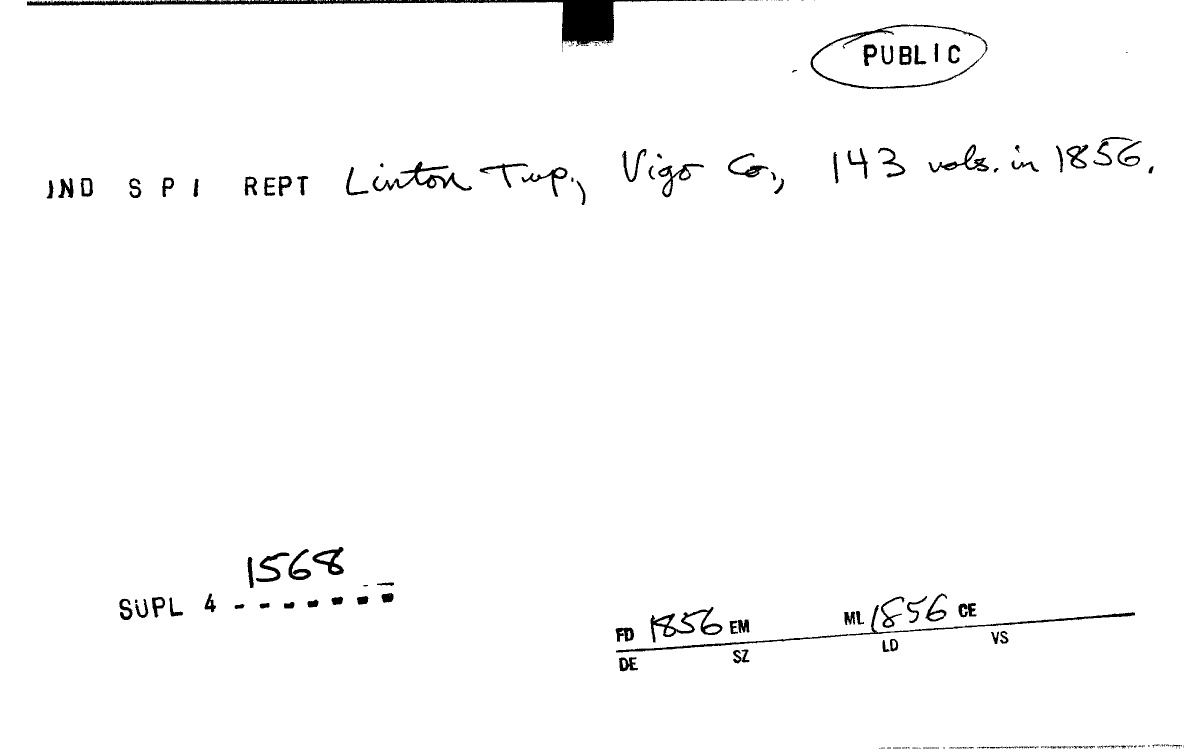 PUBLIC
IND S P I REPT Linton Twp., Vigo Co., 143 vols. in 1856.
1568
SUPL 4 -------
FD 1856 EM ML 1856 CE
DE SZ LD VS